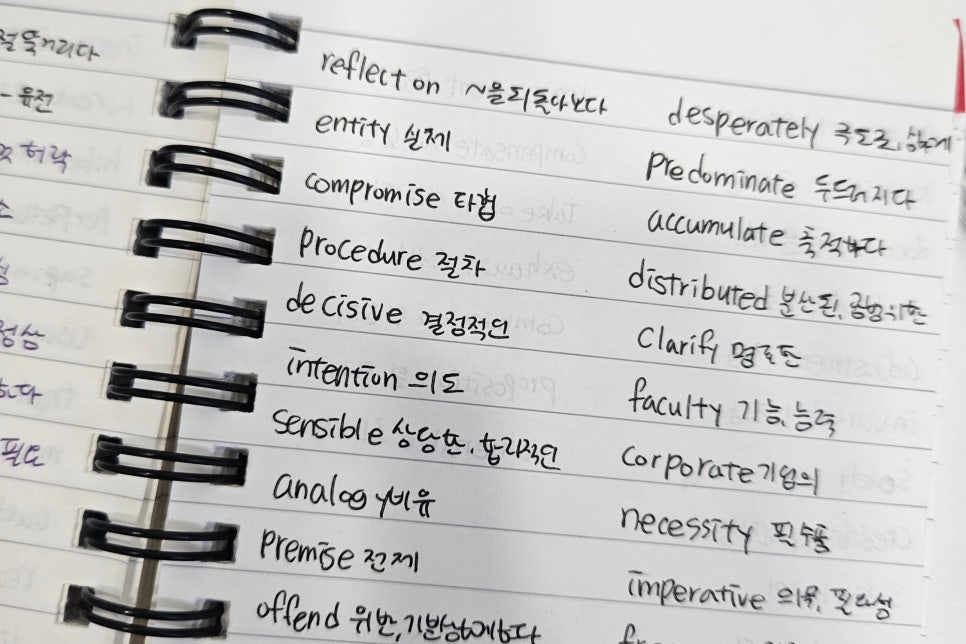 reflect on ~을 되돌아보다
entity 실제
compromise 타협
procedure 절차
decisive 결정적인
intention 의도
sensible 상당한, 합리적인
analogy 비유
premise 전제
offend 위반, 기분상하게하다
desperately 극도로,
predominate 두드러지다
accumulate 축적하다
distributed 분산된, 광범위한
clarify 명료한
faculty 기능, 능력
corporate 기업의
necessity 필수품
imperative 의무, 필요성
유전
허락
정상
필요